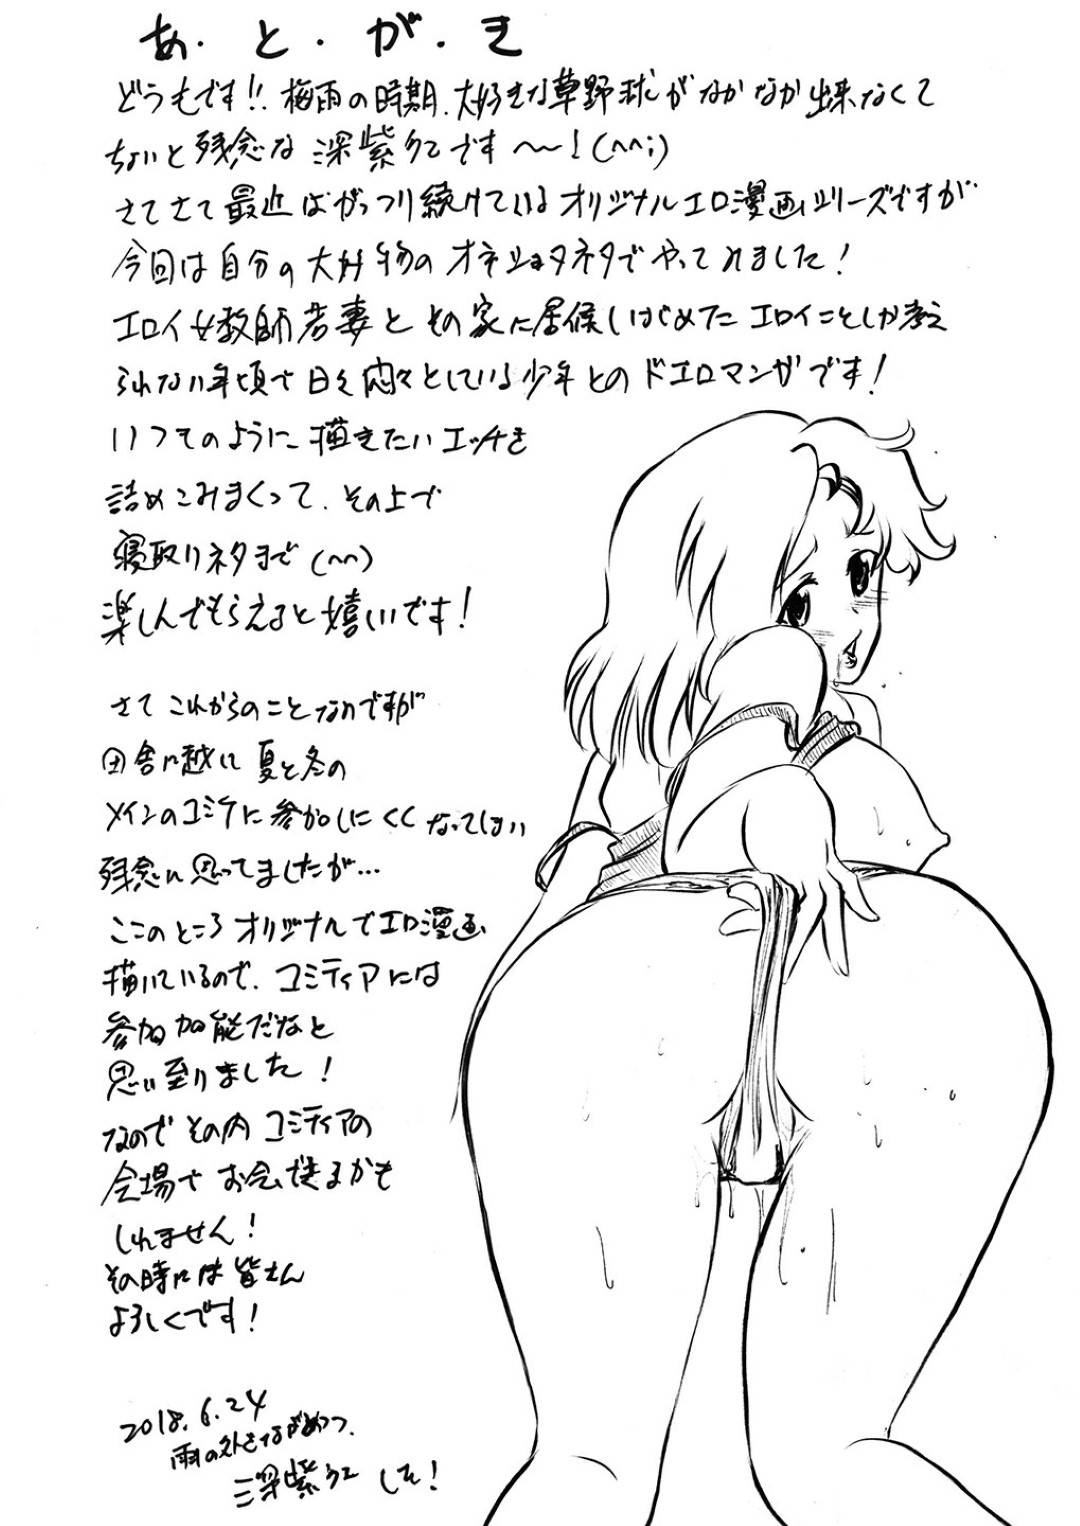 あ・と・が・き
どうもです!! 梅雨の時期、大好きな草野球がなかなか出来なくて
ちょいと残念な 深紫クエです〜〜!(^^;)
さてさて最近はがっつり続けているオリジナルエロ漫画シリーズですが
今回は自分の大好物のオネショタネタでやってみました!
エロイ女教師若妻とその家に居候しはじめたエロイことしか考え
られない年頃で日々悶々としている少年とのドエロマンガです!
いつものように描きたいエッチを
詰めこみまくって、その上で
寝取りネタまで(^^)
楽しんでもらえると嬉しいです!
さてこれからのことなのですが
田舎に越して夏と冬の
メインのコミケに参加しにくくなってしまい
残念に思ってましたが…
ここのところオリジナルでエロ漫画
描いているので、コミティアには
参加可能だなと
思い至りました!
なのでその内コミティアの
会場でお会いできるかも
しれません!
その時には皆さん
よろしくです!
2018.6.24
雨の外をながめつつ、
深紫クエ